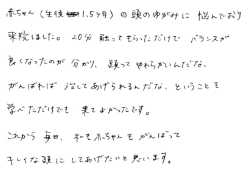 赤ちゃん(生後1.5ヶ月)の頭のゆがみに悩んでおり
来院しました。20分触ってもらっただけでバランスが
良くなったのが分かり、頭ってやわらかいんだな。
がんばれば治してあげられるんだな、ということを
学べただけでも来てよかったです。
これから毎日、私も赤ちゃんもがんばって
キレイな頭にしてあげたいと思います。